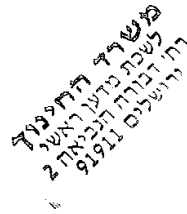 משרד החינוך
לשכת מדען ראשי
רח' דבורה הנביאה 2
ירושלים 91911